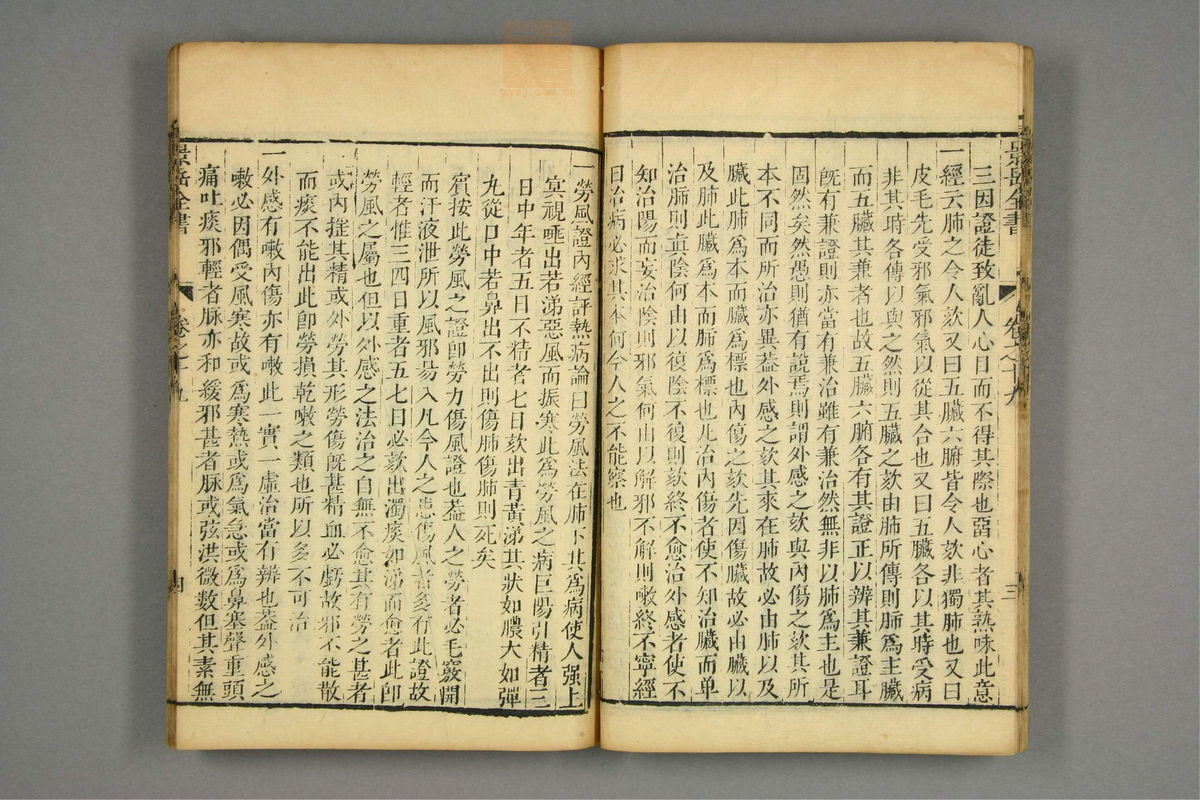 景岳全書
卷之十九
三
三因證徒致亂人心目而不得其際也留心者其熟味此意
一經云肺之令人欬又曰五臟六腑皆令人欬非獨肺也又曰
皮毛先受邪氣邪氣以從其合也又曰五臟各以其時受病
非其時各傳以與之然則五臟之欬由肺所傳則肺爲主臟
而五臟其兼者也故五臟六腑各有其證正以辨其兼證耳
旣有兼證則亦當有兼治雖有兼治然無非以肺爲主也是
固然矣然愚則猶有說焉則謂外感之欬與內傷之欬其所
本不同而所治亦異葢外感之欬其來在肺故必由肺以及
臟此肺爲本而臟爲標也內傷之欬先因傷臟故必由臟以
及肺此臟爲本而肺爲標也凡治內傷者使不知治臟而单
治肺則眞陰何由以復陰不復則欬終不愈治外感者使不
知治陽而妄治陰則邪氣何由以解邪不解則嗽終不寧經
曰治病必求其本何今人之不能察也
一勞風證內經評熱病論曰勞風法在肺下其爲病使人强上
冥視唾出若涕惡風而振寒此爲勞風之病巨陽引精者三
日中年者五日不精者七日欬出青黃涕其狀如膿大如彈
丸從口中若鼻出不出則傷肺傷肺則死矣
賓按此勞風之證卽勞力傷風證也葢人之勞者必毛竅開
而汗液泄所以風邪易入凡今人之患傷風者多有此證故
輕者惟三四日重者五七日必欬出濁痰如涕而愈者此卽
勞風之屬也但以外感之法治之自無不愈其有勞之甚者
或內摧其精或外勞其形勞傷旣甚精血必虧故邪不能散
而痰不能出此卽勞損乾嗽之類也所以多不可治
一外感有嗽內傷亦有嗽此一實一虛治當有辨也葢外感之
嗽必因偶受風寒故或爲寒熱或爲氣急或爲鼻塞聲重頭
痛吐痰邪輕者脉亦和緩邪甚者脉或弦洪微數但其素無
景岳全書
卷之十九
四